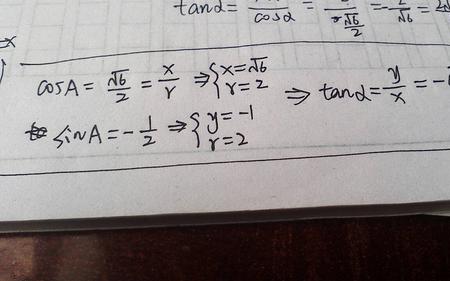 tanα = /cosα = /√6/2 = -/√6 =
cosA = √6/2 = x/r ⇒ { x=√6
r=2
⇒ tanα = y/x = -
sinA = -1/2 ⇒ { y=-1
r=2